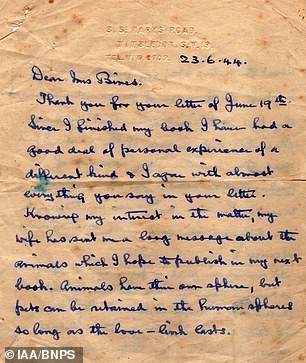 5, ST MARYS ROAD,
WIMBLEDON, S.W.19
23.6.44.
Dear Mrs Bines.
Thank you for your letter of June 19th.
Since I finished my book I have had a
good deal of personal experience of a
different kind & I agree with almost
everything you say in your letter.
Knowing my interest in the matter, my
wife has sent me a long message about the
animals which I hope to publish in my next
book. Animals have their own sphere, but
pets can be retained in the human spheres
so long as the love-link lasts.
© IAA/BNPS